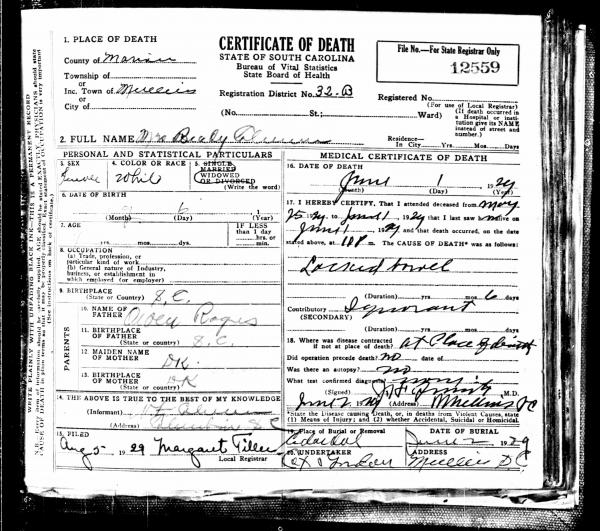 WRITE PLAINLY WITH UNFADING BLACK INK—THIS IS A PERMANENT RECORD
1. PLACE OF DEATH
County of Marion
Township of
or
Inc. Town of Mullins
or
City of
CERTIFICATE OF DEATH
STATE OF SOUTH CAROLINA
Bureau of Vital Statistics
State Board of Health
Registration District No. 32-B
(No. St.; Ward)
File No.—For State Registrar Only
12559
Registered No.
(For use of Local Registrar)
(If death occurred in a Hospital or institution give its NAME instead of street and number.)
2. FULL NAME Mrs
Residence—
In City Yrs. Mos. Days
PERSONAL AND STATISTICAL PARTICULARS
3. SEX
Female
4. COLOR OR RACE
White
5. SINGLE
MARRIED
WIDOWED
OR DIVORCED
(Write the word)
6. DATE OF BIRTH
6 1
(Month) (Day) (Year)
7. AGE
yrs. mos. days
IF LESS than 1 day
hrs. or
min.
8. OCCUPATION
(a) Trade, profession, or particular kind of work
(b) General nature of Industry, business, or establishment in which employed (or employer)
9. BIRTHPLACE
(State or Country) S. C.
PARENTS
10. NAME OF FATHER Owen Rogers
11. BIRTHPLACE OF FATHER
(State or country) S. C.
12. MAIDEN NAME OF MOTHER DK.
13. BIRTHPLACE OF MOTHER DK
(State or country)
14. THE ABOVE IS TRUE TO THE BEST OF MY KNOWLEDGE
(Informant)
(Address) S C
15. FILED
Aug 5 - 1929 Margaret Tiller
Local Registrar
MEDICAL CERTIFICATE OF DEATH
16. DATE OF DEATH
June 1 1929
(Month) (Day) (Year)
17. I HEREBY CERTIFY, That I attended deceased from May
1929, to June 1, 1929 that I last saw h alive on
June 1, 1929 and that death occurred, on the date
stated above, at M. The CAUSE OF DEATH* was as follows:
Locked bowel
(Duration) yrs. mos. 6 days
Contributory Ignorant
(SECONDARY)
(Duration) yrs. mos. days
18. Where was disease contracted
if not at place of death? at Place of death
Did operation precede death? no date of
Was there an autopsy? no
What test confirmed diagnosis?
(Signed) M.D.
June 2 1929 (Address) Mullins SC
*State the Disease causing Death, or, in deaths from Violent Causes, state (1) Means of Injury; and (2) whether Accidental, Suicidal or Homicidal.
19. Place of Burial or Removal
DATE OF BURIAL
June 2 1929
20. UNDERTAKER
ADDRESS
Mullins S C